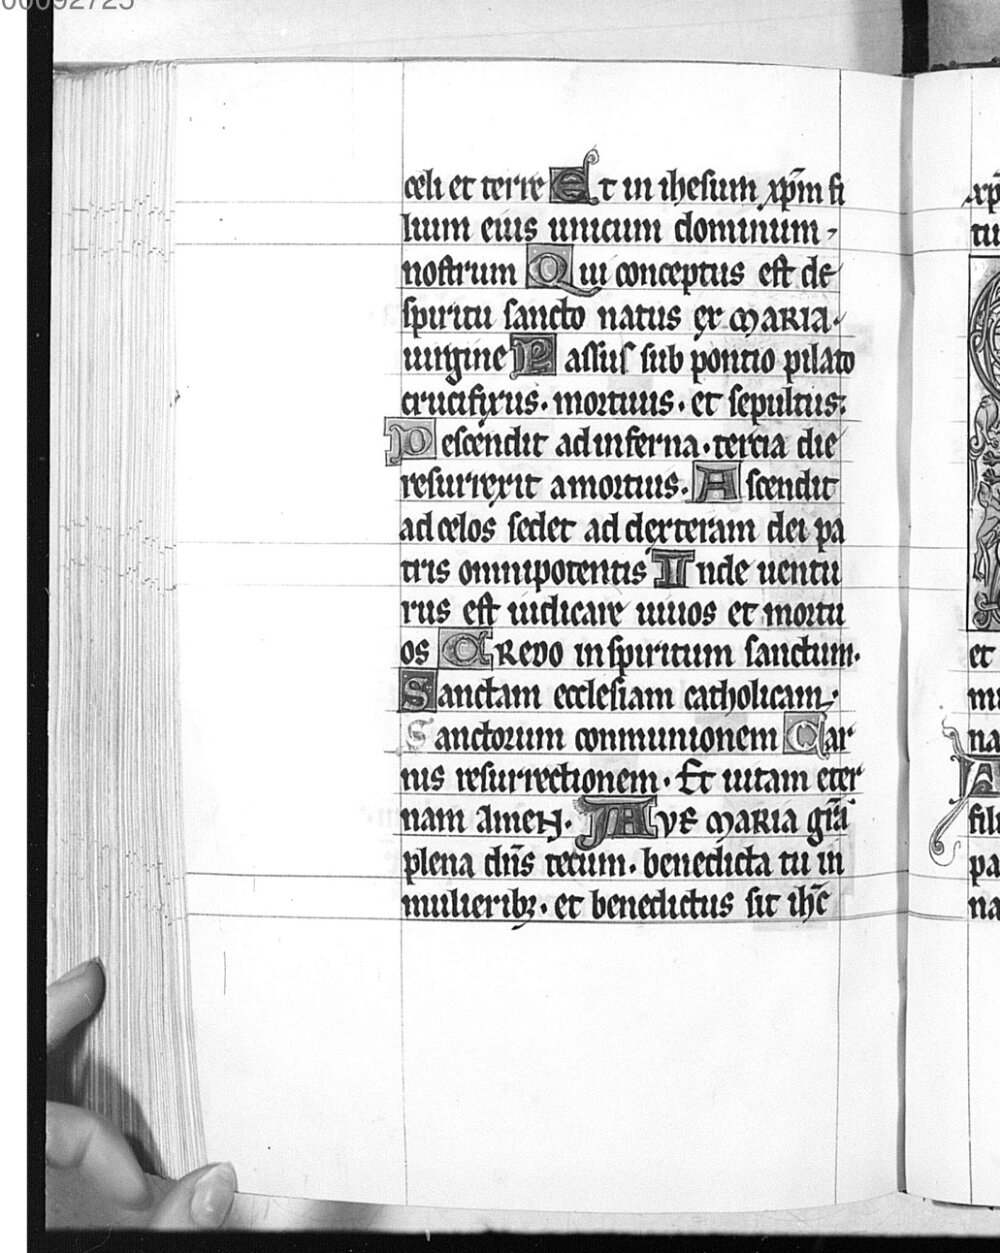 00092725
celi et terre Et in ihesum xp̄m fi
lium eius unicum dominum
nostrum Qui conceptus est de
spiritu sancto natus ex MARIA
uirgine Passus sub pontio pilato
crucifixus. mortuus. et sepultus:
Descendit ad inferna. tercia die
resurrexit a mortuis. Ascendit
ad celos sedet ad dexteram dei pa
tris omnipotentis Inde uentu
rus est iudicare uiuos et mortu
os CREDO in spiritum sanctum.
Sanctam ecclesiam catholicam;
Sanctorum conmunionem Car
nis resurrectionem. Et uitam eter
nam AMEN. AVE MARIA grā
plena dn̄s tecum. benedicta tu in
mulieribꝫ. et benedictus sit ihc̄
xp
tu
et
mu
na
A
fili
pa
na